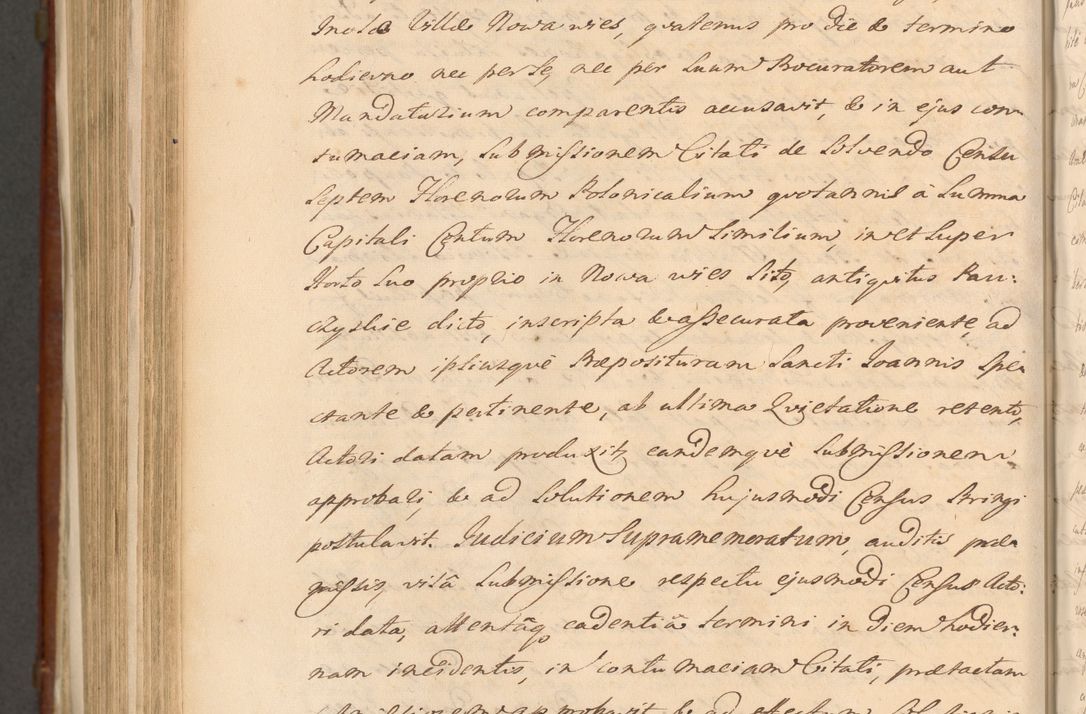 Incolæ Villæ Nowa wies, quatenus pro die & termino
hodierno nec per se, nec per suum Procuratorem aut
Mandatarium comparentis accusavit, & in ejus con-
tumaciam, submissionem Citati de solvendo Censu
septem Florenorum Polonicalium quotannis à summa
Capitali Centum Florenorum similium, in et super
Horto suo proprio in Nowa wies sito, antiquitus Pau:
czyskie dicto, inscripta & assecurata proveniente, ad
Actorem ipsiusquè Præposituram Sancti Joannis spe-
ctante & pertinente, ab ultima Quietatione retento,
Actori datam produxit, eandemquè submissionem
approbari, & ad solutionem hujusmodi Census stringi
postulavit. Judicium Supramemoratum, auditis præ-
missis, visâ submissione respectu ejusmodi Census Acto:
ri data, attentaq̃ cadentiâ termini in diem hodier:
nam incidentis, in contumaciam Citati, prætactam
submissionem approbavit & ad effectum